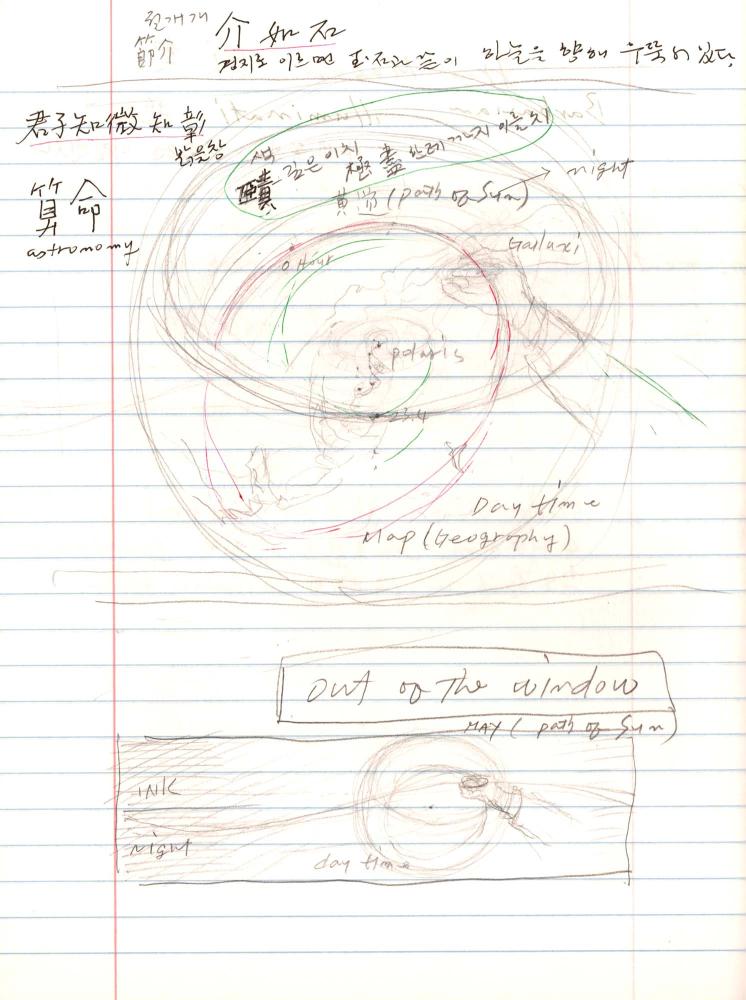 절개 개
節介 介如石
경지로 이르면 하늘을 향해 우뚝 서 있다.
君子知微知彰
밝을 창
색 깊은 이치 極盡
賾
黃道 (path of Sun) → night
算命
astronomy
0 Hour
Galluxi
polaris
23.4
Day time
Map (Geography)
Out of the window
MAY (path of Sun)
INK
Night
day time